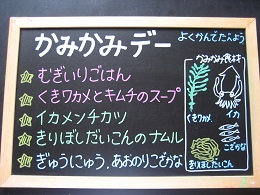 かみかみデー
むぎいりごはん
くきワカメとキムチのスープ
イカメンチカツ
きりぼしだいこんのナムル
ぎゅうにゅう、あおのりこざかな
よくかんでたべよう
かみかみ食材
くきワカメ
イカ
こざかな
きりぼしだいこん